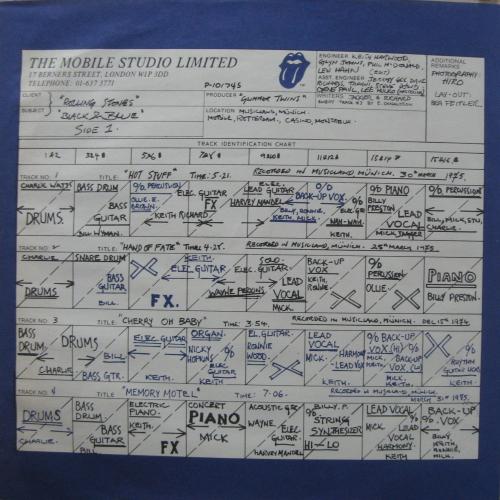 THE MOBILE STUDIO LIMITED
17 BERNERS STREET, LONDON W1P 3DD
TELEPHONE: 01-637 3771
CLIENT "ROLLING STONES"
SUBJECT "BLACK & BLUE"
SIDE 1.
P-101745
PRODUCER "GLIMMER TWINS"
LOCATION MUSICLAND, MUNICH.
MOBILE, ROTTERDAM, CASINO, MONTREUX.
ENGINEER KEITH HARWOOD
GLYN JOHNS, PHIL McDONALD,
LEW HAHN
ASST. ENGINEER JEREMY GEE, DAVE
ADDITIONAL
REMARKS
PHOTOGRAPHY:
HIRO
LAY-OUT:
BEA FEITLER.
TRACK IDENTIFICATION CHART
1&2 3&4 5&6 7&8 9&10 11&12 13&14 15&16
TRACK NO. 1 TITLE "HOT STUFF" TIME: 5-21. RECORDED IN MUSICLAND MUNICH. 30TH MARCH 1975.
CHARLIE WATTS
DRUMS.
BASS DRUM
BASS GUITAR
BILL WYMAN.
% PERCUSSION
OLLIE. E. BROWN.
ELEC GUITAR
KEITH RICHARD
FX
ELEC LEAD GUITAR
HARVEY MANDEL
O/D
BACK-UP VOX
BILLY, RONNIE, KEITH, MICK.
ELEC GTR
WAH-WAH
KEITH.
% PIANO
BILLY PRESTON
LEAD VOCAL
MICK JAGGER
% PERCUSSION
BILLY, MICK, STU, CHARLIE.
TRACK NO. 2 TITLE "HAND OF FATE" TIME: 4-28. RECORDED IN MUSICLAND, MUNICH. 25TH MARCH 1975.
CHARLIE
DRUMS
SNARE DRUM
BASS GUITAR
BILL.
KEITH.
ELEC GUITAR
FX.
ELEC. GUITAR
WAYNE PERKINS.
SOLO.
LEAD VOCAL
MICK.
BACK-UP VOX
KEITH, RONNIE
% PERCUSSION
OLLIE.
PIANO
BILLY PRESTON.
TRACK NO. 3 TITLE "CHERRY OH BABY" TIME: 3-54. RECORDED IN MUSICLAND, MUNICH. DEC 15TH 1974.
BASS DRUM
DRUMS
CHARLIE
BILL
BASS GTR.
ELEC GUITAR
KEITH.
ORGAN.
NICKY HOPKINS
%
ELEC GUITAR
KEITH
EL. GUITAR.
RONNIE WOOD
LEAD VOCAL
MICK.
HARMONY-LEAD VOX
KEITH.
% BACK-UP VOX (HI)
MICK, KEITH
BACK-UP VOX (LO)
MICK, KEITH.
%
RHYTHM GUITAR
KEITH.
TRACK NO. 4 TITLE "MEMORY MOTEL" TIME: 7-06. RECORDED IN MUSICLAND, MUNICH. MARCH 31ST 1975.
DRUMS
CHARLIE.
BASS DRUM
BASS GUITAR
BILL
ELECTRIC PIANO.
KEITH.
FX
CONCERT PIANO
MICK
ACOUSTIC GTR
WAYNE
ELEC. GUITAR.
HARVEY MANDEL
BILLY. P.
STRING SYNTHESIZER
HI LO
LEAD VOCAL
MICK.
LEAD VOCAL HARMONY
KEITH
BACK-UP VOX.
BILLY, KEITH, RONNIE, MICK.